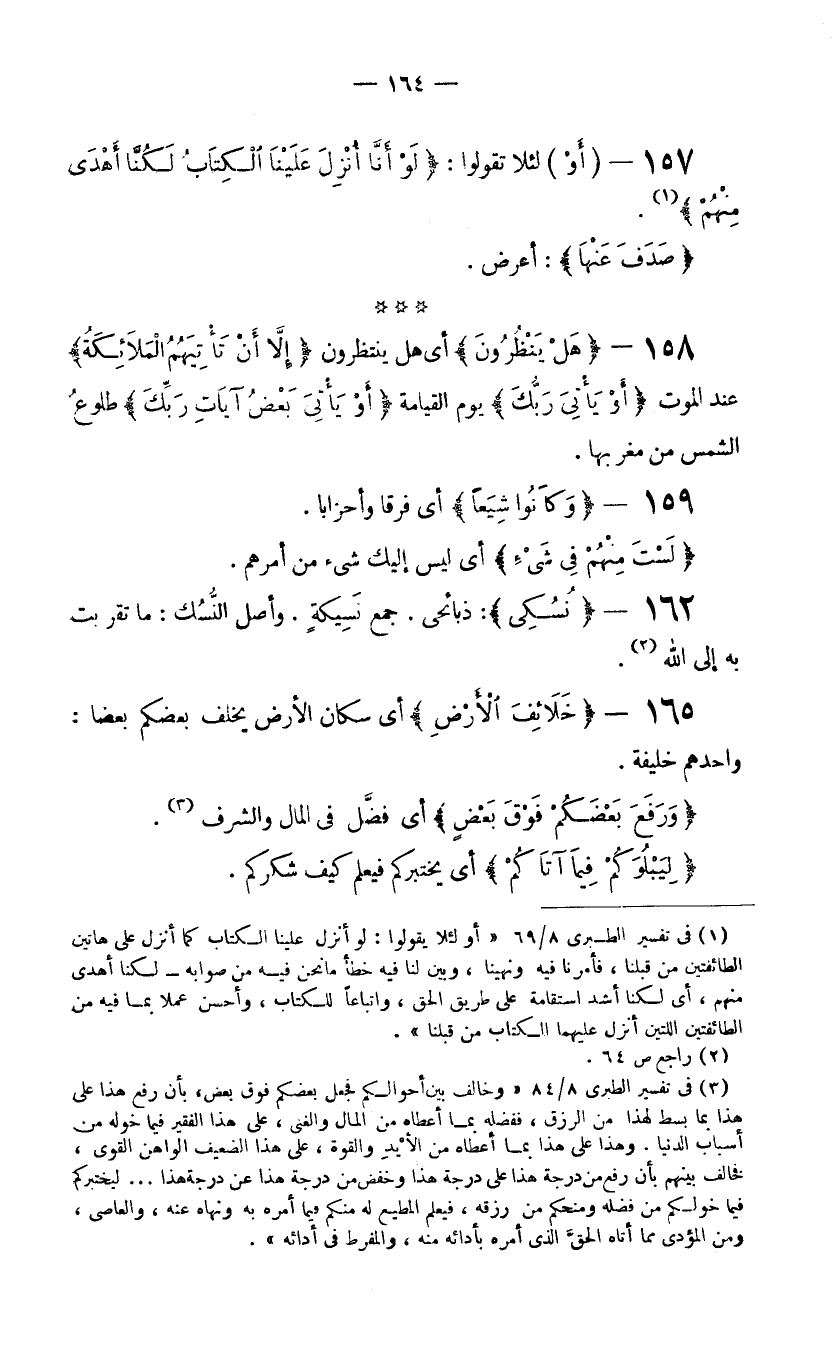 — ١٦٤ —
١٥٧ — ( أَوْ ) لئلا تقولوا : ﴿ لَوْ أَنَّا أُنْزِلَ عَلَيْنَا ٱلْكِتَابُ لَكُنَّا أَهْدَى
مِنْهُمْ ﴾ (١) .
﴿ صَدَفَ عَنْهَا ﴾ : أعرض .
* * *
١٥٨ — ﴿ هَلْ يَنْظُرُونَ ﴾ أى هل ينتظرون ﴿ إِلَّا أَنْ تَأْتِيَهُمُ الْمَلَائِكَةُ ﴾
عند الموت ﴿ أَوْ يَأْتِىَ رَبُّكَ ﴾ يوم القيامة ﴿ أَوْ يَأْتِىَ بَعْضُ آيَاتِ رَبِّكَ ﴾ طلوعُ
الشمس من مغربها .
١٥٩ — ﴿ وَكَانُوا شِيَعاً ﴾ أى فرقا وأحزابا .
﴿ لَسْتَ مِنْهُمْ فِى شَىْءٍ ﴾ أى ليس إليك شىء من أمرهم .
١٦٢ — ﴿ نُسُكِى ﴾ : ذبائحى . جمع نَسِيكةٍ . وأصل النُّسُك : ما تقربت
به إلى الله (٢) .
١٦٥ — ﴿ خَلَائِفَ ٱلْأَرْضِ ﴾ أى سكان الأرض يخلف بعضكم بعضا :
واحدهم خليفة .
﴿ وَرَفَعَ بَعْضَكُمْ فَوْقَ بَعْضٍ ﴾ أى فضَّل فى المال والشرف (٣) .
﴿ لِيَبْلُوَكُمْ فِيمَا آتَاكُمْ ﴾ أى يختبركم فيعلم كيف شكركم .
(١) فى تفسير الطبرى ٦٩/٨ « أو لئلا يقولوا : لو أنزل علينا الكتاب كما أنزل على هاتين
الطائفتين من قبلنا ، فأمرنا فيه ونهينا ، وبين لنا فيه خطأ مانحن فيه من صوابه – لكنا أهدى
منهم ، أى لكنا أشد استقامة على طريق الحق ، واتباعاً للكتاب ، وأحسن عملا بما فيه من
الطائفتين اللتين أنزل عليهما الكتاب من قبلنا » .
(٢) راجع ص ٦٤ .
(٣) فى تفسير الطبرى ٨٤/٨ « وخالف بين أحوالكم فجعل بعضكم فوق بعض، بأن رفع هذا على
هذا بما بسط لهذا من الرزق ، ففضله بما أعطاه من المال والغنى ، على هذا الفقير فيما خوله من
أسباب الدنيا . وهذا على هذا بما أعطاه من الأيْدِ والقوة ، على هذا الضعيف الواهن القوى ،
فخالف بينهم بأن رفع من درجة هذا على درجة هذا وخفض من درجة هذا عن درجة هذا ... ليختبركم
فيما خولكم من فضله ومنحكم من رزقه ، فيعلم المطيع له منكم فيما أمره به ونهاه عنه ، والعاصى ،
ومن المؤدى مما أتاه الحقَّ الذى أمره بأدائه منه ، والمفرط فى أدائه » .